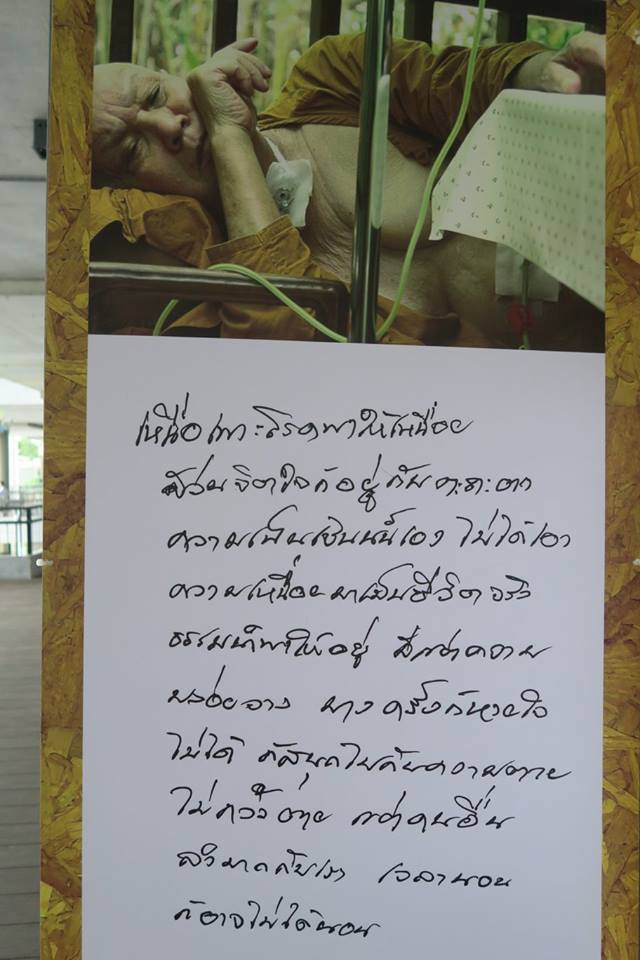 เหนื่อยเพราะโรคพาให้เหนื่อย
ส่วนจิตใจก็อยู่กับตะถะตา
ความเป็นเช่นนั้นเอง ไม่ได้เอา
ความเหนื่อยมาเป็นชีวิตจริง
ธรรมที่พาให้อยู่ คือความ
ปล่อยวาง บางครั้งก็หายใจ
ไม่ได้ ก็สนุกไปกับความตาย
ไม่ กว่าคนอื่น
ลำบากกับเรา เวลานอน
ก็อาจไม่ได้นอน